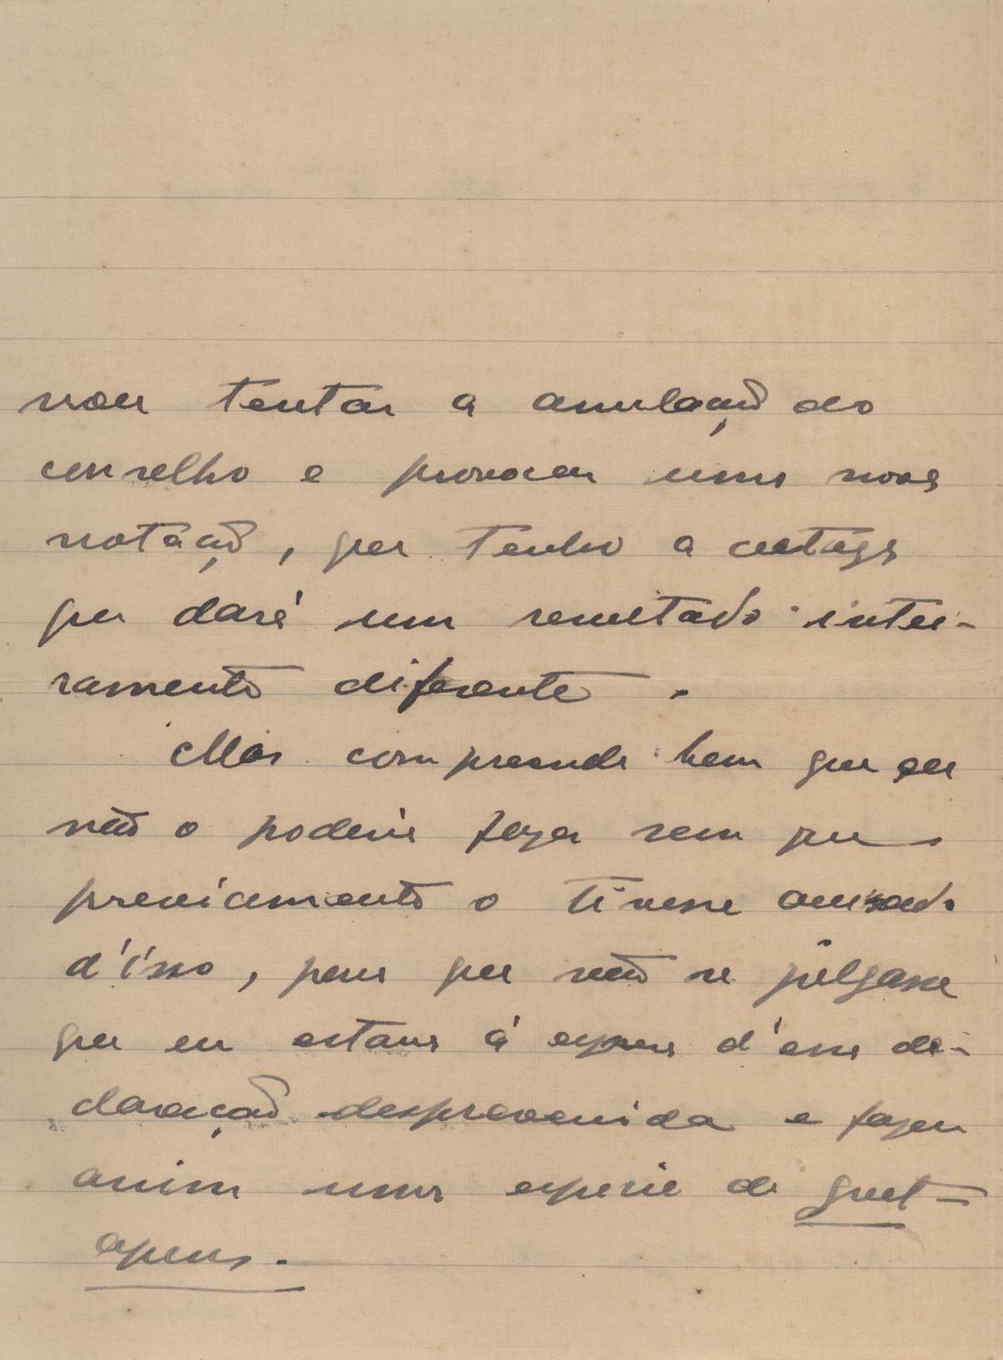 vou tentar a anulação do
conselho e provocar uma nova
votação, que tenho a certeza
que dará um resultado intei-
ramente diferente.
Mas comprehende bem que eu
não o poderia fazer sem que
previamente o tivesse avisado
d'isso, para que não se julgasse
que eu estava á espera d'essa de-
claração desprevenida e fazer
assim uma especie de guet-
apens.